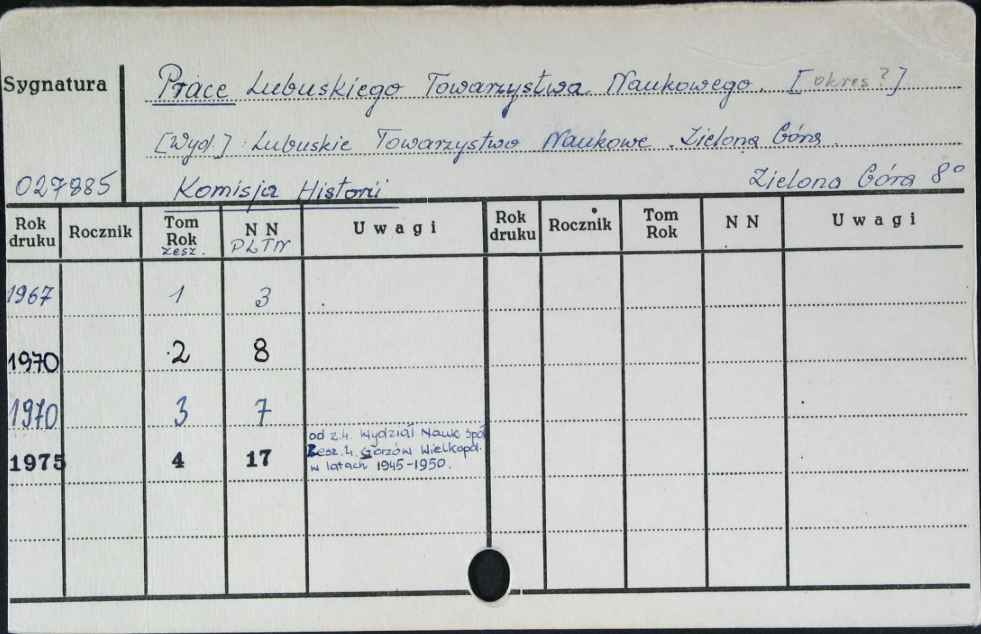 Sygnatura
Prace Lubuskiego Towarzystwa Naukowego. [okres?]
[Wyd.]: Lubuskie Towarzystwo Naukowe. Zielona Góra.
027885 Komisja Historii Zielona Góra 8°
Rok druku Rocznik Tom Rok zesz. N N PLTN Uwagi Rok druku Rocznik Tom Rok N N Uwagi
1967 1 3
1970 2 8
1970 3 7
1975 4 17 od z.4. Wydział Nauk Społ
Zesz. 4. Gorzów Wielkopol.
w latach 1945-1950.